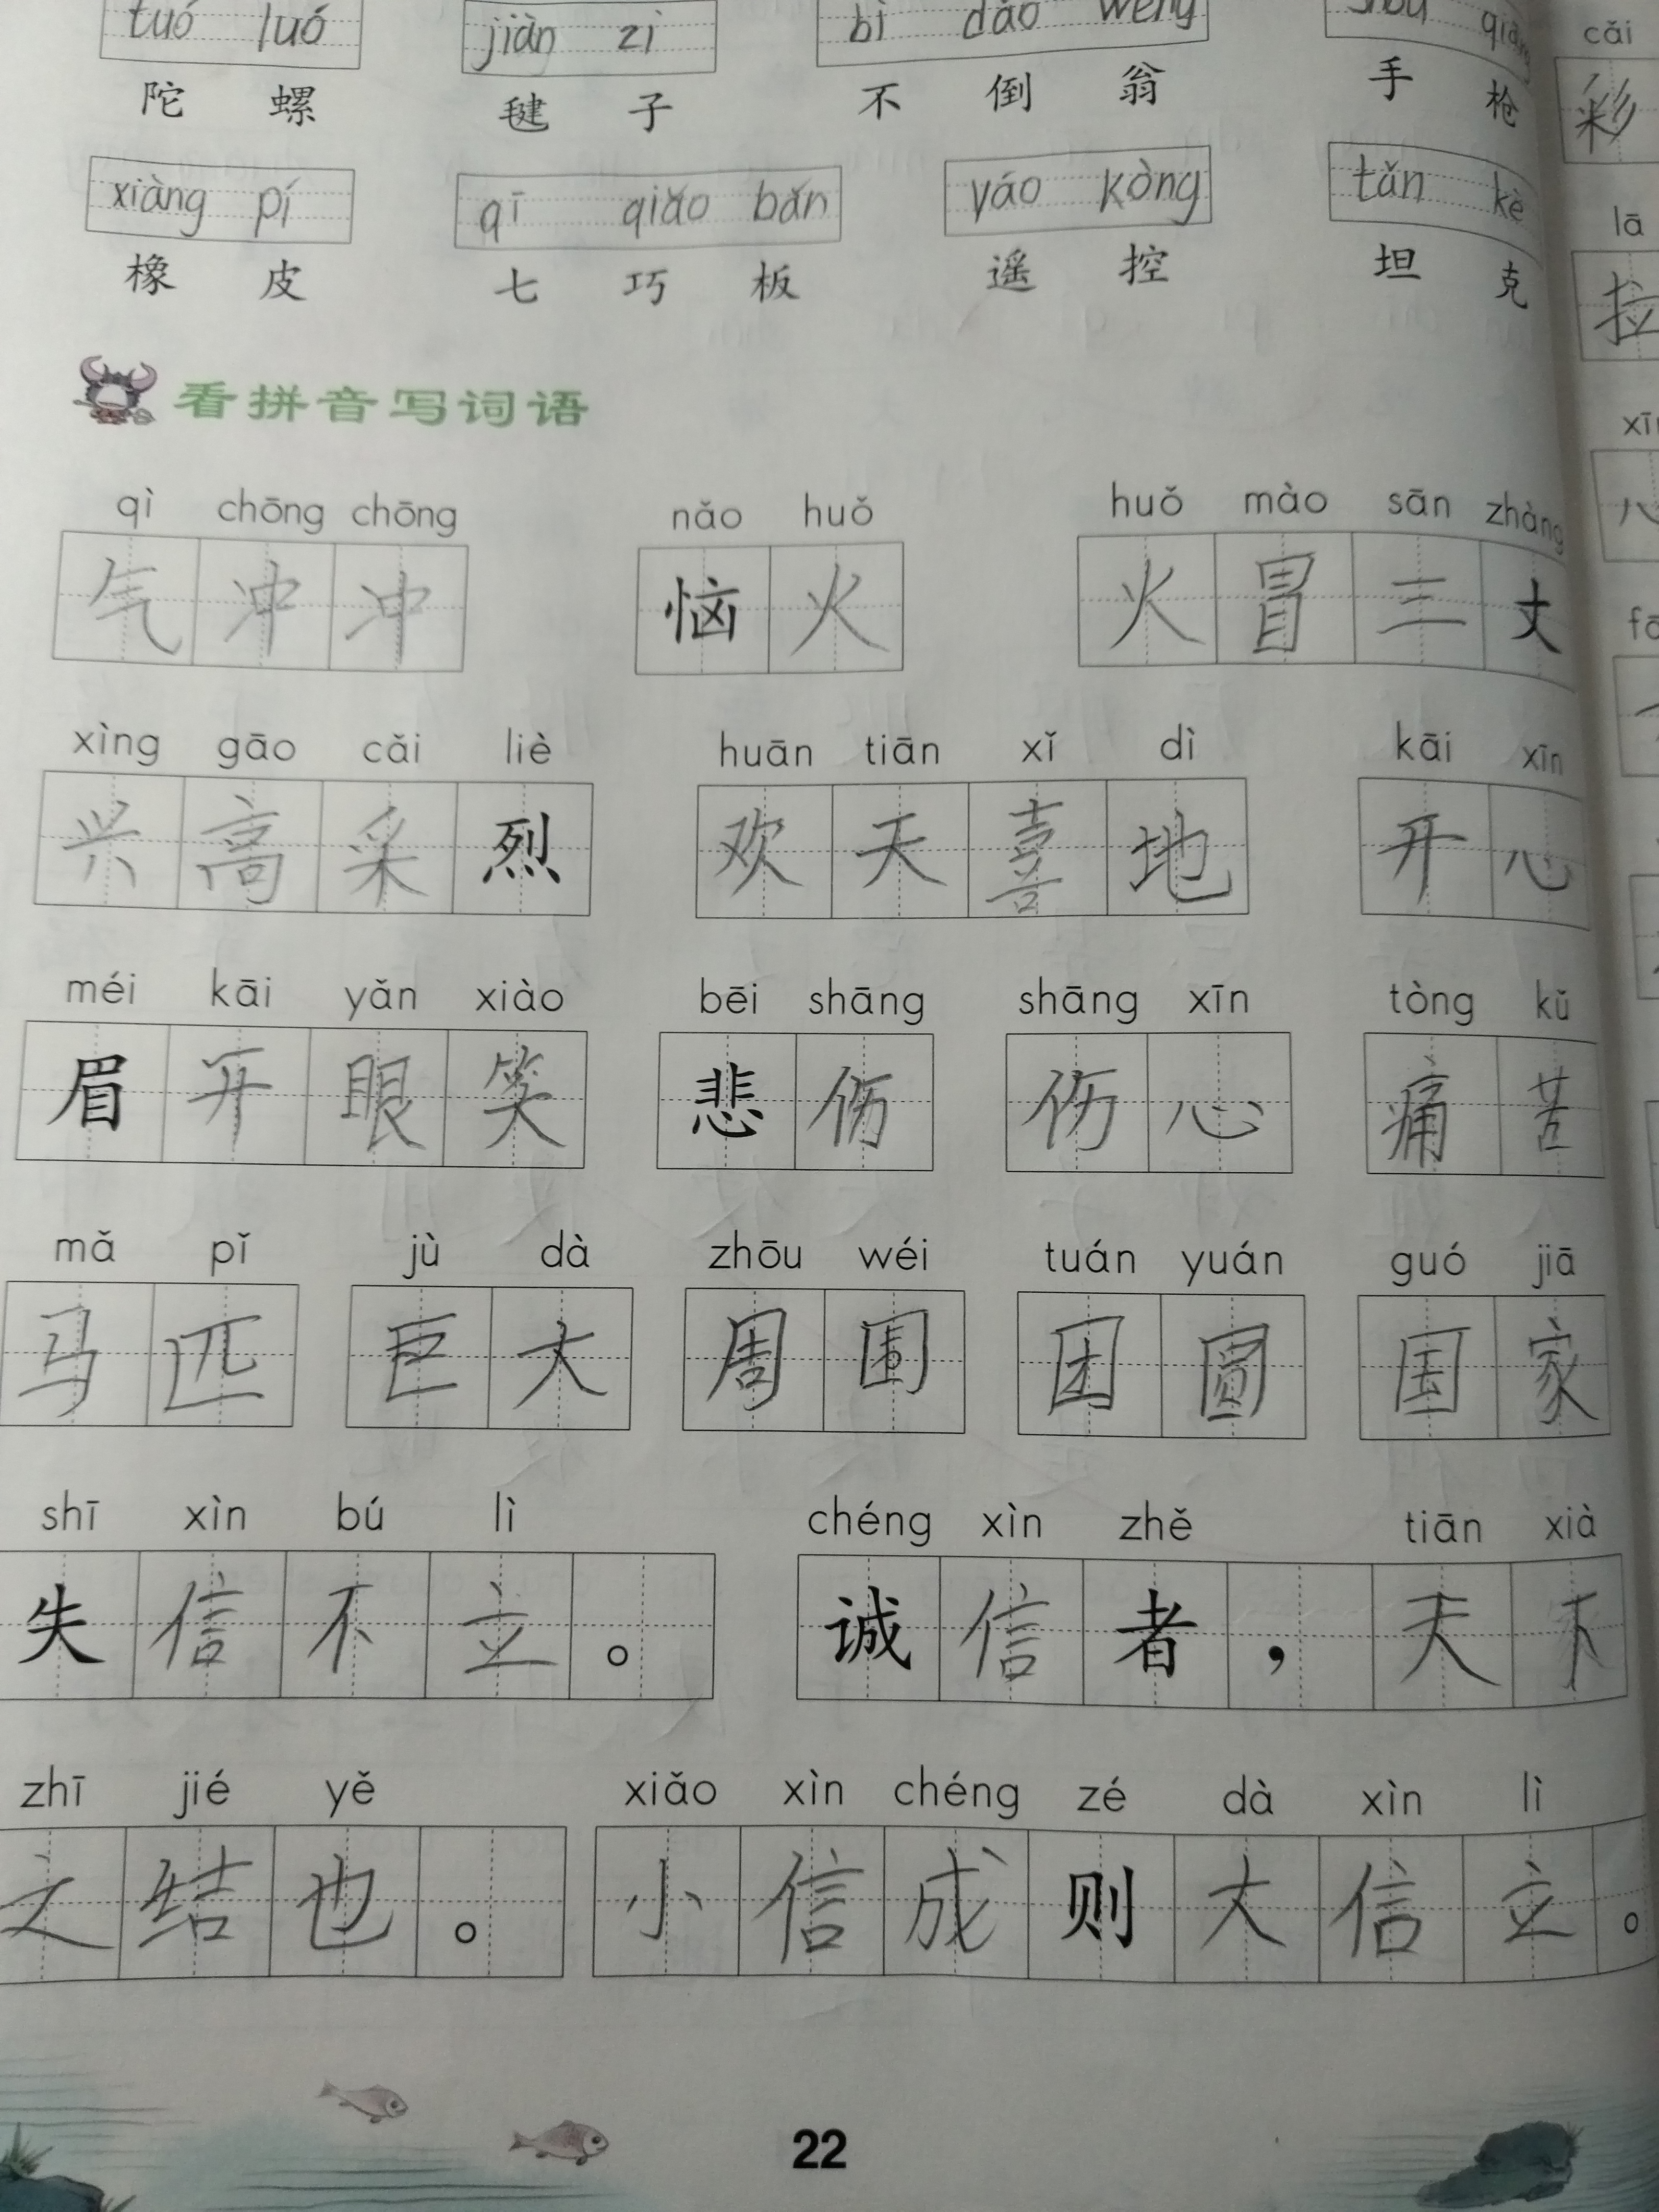 tuó luó jiàn zi bì dǎo wēng shǒu qiāng
陀 螺 毽 子 不 倒 翁 手 枪
xiàng pí qī qiǎo bǎn yáo kòng tǎn kè
橡 皮 七 巧 板 遥 控 坦 克
看拼音写词语
qì chōng chōng nǎo huǒ huǒ mào sān zhàng
气 冲 冲 恼 火 火 冒 三 丈
xìng gāo cǎi liè huān tiān xǐ dì kāi xīn
兴 高 采 烈 欢 天 喜 地 开 心
méi kāi yǎn xiào bēi shāng shāng xīn tòng kǔ
眉 开 眼 笑 悲 伤 伤 心 痛 苦
mǎ pǐ jù dà zhōu wéi tuán yuán guó jiā
马 匹 巨 大 周 围 团 圆 国 家
shī xìn bú lì chéng xìn zhě tiān xià
失 信 不 立 。 诚 信 者 , 天 下
zhī jié yě xiǎo xìn chéng zé dà xìn lì
之 结 也 。 小 信 成 则 大 信 立 。
22
cǎi
彩
lā
拉